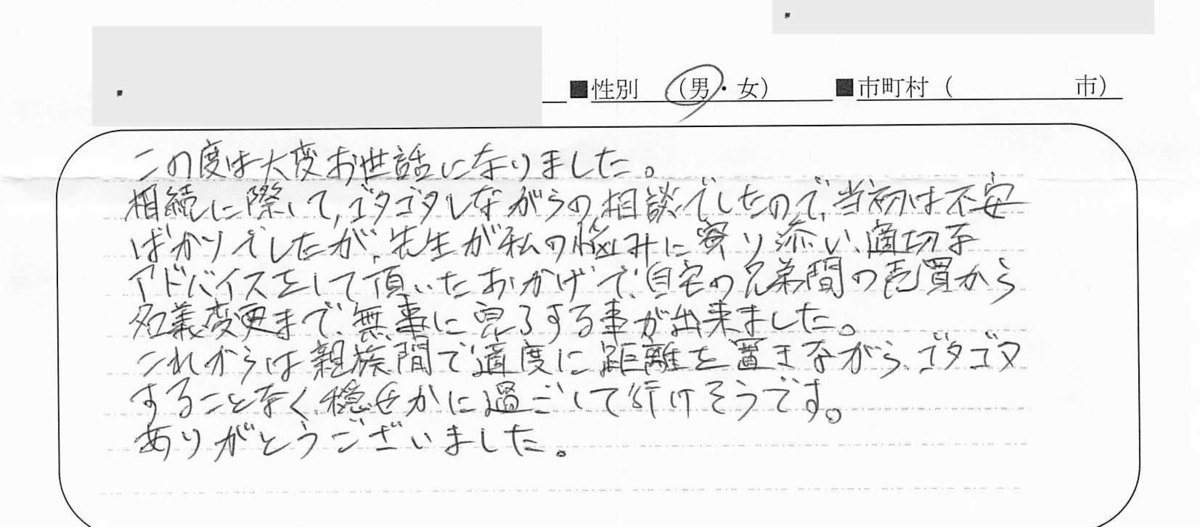 ■性別 （男・女） ■市町村（ 市）
この度は大変お世話になりました。
相続に際して、ゴタゴタしながらの相談でしたので、当初は不安
ばかりでしたが、先生が私の悩みに寄り添い、適切な
アドバイスをして頂いたおかげで、自宅の兄弟間の売買から
名義変更まで、無事に完了する事が出来ました。
これからは親族間で適度に距離を置きながら、ゴタゴタ
することなく、穏やかに過ごして行けそうです。
ありがとうございました。